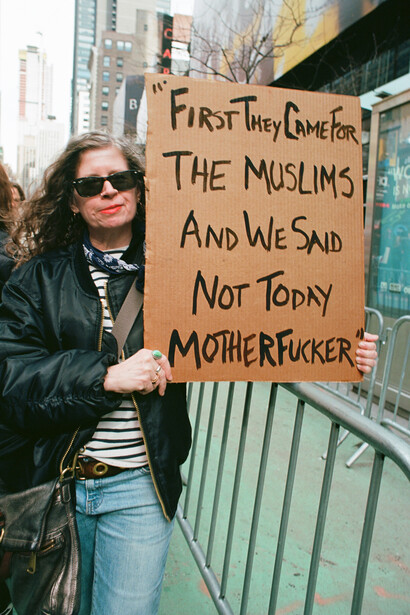 "First They Came For
The Muslims
And We Said
Not Today
Motherfucker"